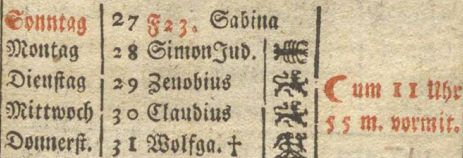 Sonntag 27 F23. Sabina
Montag 28 Simon Jud.
Dienstag 29 Zenobius
Mittwoch 30 Claudius
Donnerst. 31 Wolfga. †
☾ um 11 Uhr
55 m. vormit.